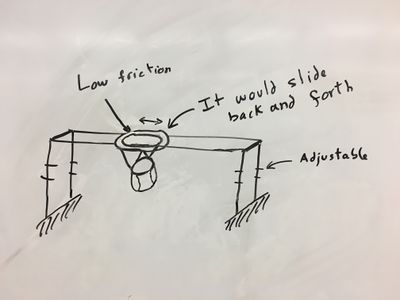 Low friction
It would slide
back and forth
Adjustable